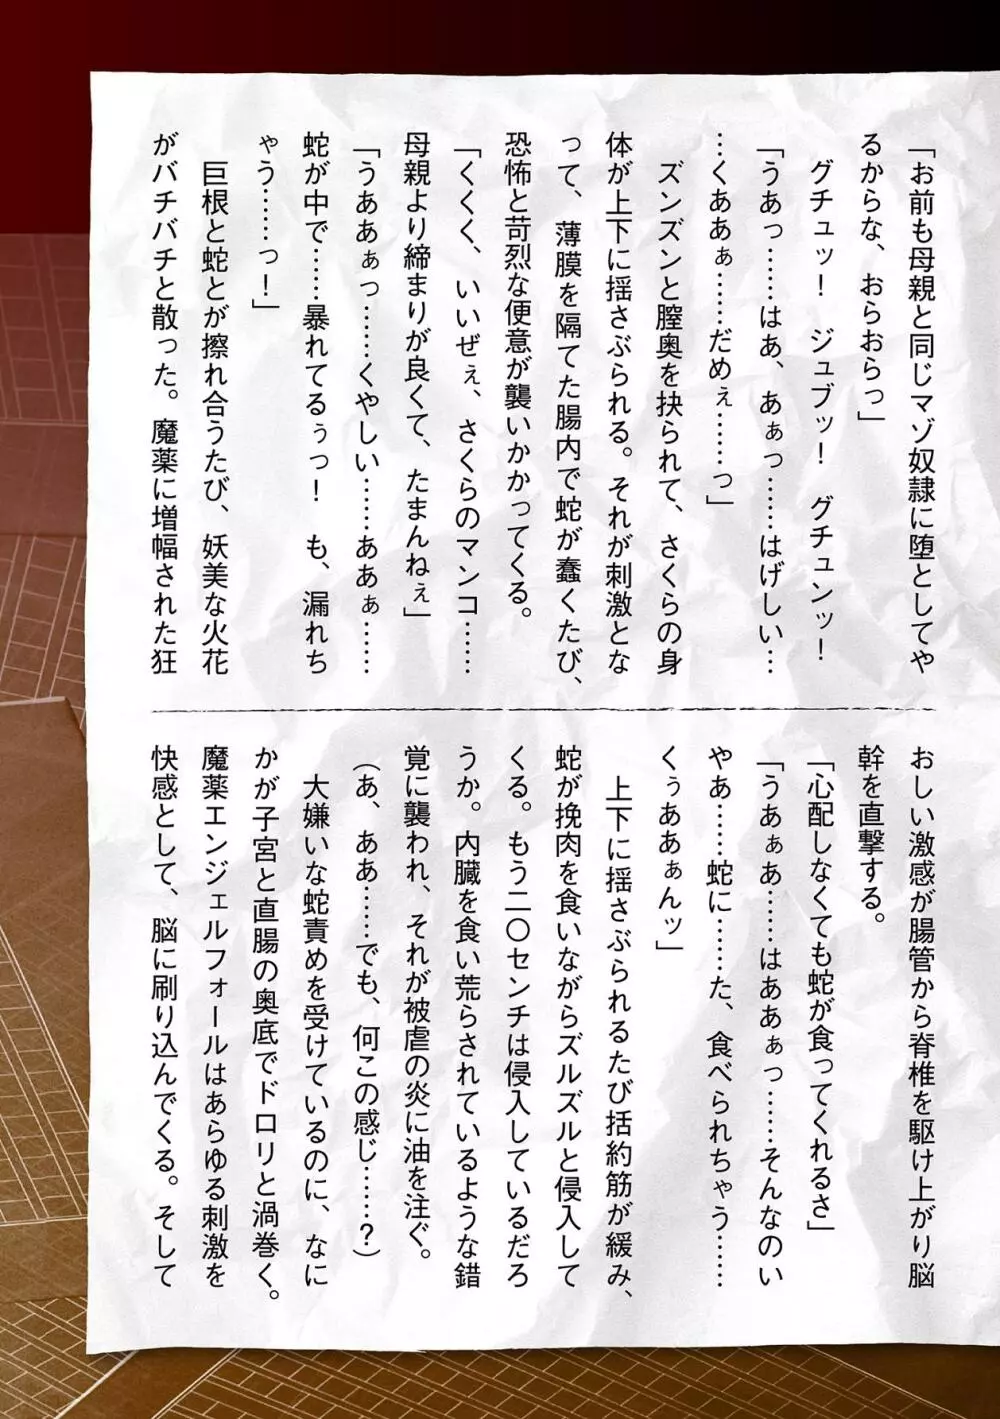 「お前も母親と同じマゾ奴隷に堕としてや
るからな、おらおらっ」
グチュッ！　ジュブッ！　グチュンッ！
「うあっ……はあ、あぁっ……はげしい…
…くああぁ……だめぇ……っ」
ズンズンと膣奥を抉られて、さくらの身
体が上下に揺さぶられる。それが刺激とな
って、薄膜を隔てた腸内で蛇が蠢くたび、
恐怖と苛烈な便意が襲いかかってくる。
「くくく、いいぜぇ、さくらのマンコ……
母親より締まりが良くて、たまんねぇ」
「うああぁっ……くやしい……ああぁ……
蛇が中で……暴れてるぅっ！　も、漏れち
ゃう……っ！」
巨根と蛇とが擦れ合うたび、妖美な火花
がバチバチと散った。魔薬に増幅された狂
おしい激感が腸管から脊椎を駆け上がり脳
幹を直撃する。
「心配しなくても蛇が食ってくれるさ」
「うあぁあ……はああぁっ……そんなのい
やあ……蛇に……た、食べられちゃう……
くぅああぁんッ」
上下に揺さぶられるたび括約筋が緩み、
蛇が挽肉を食いながらズルズルと侵入して
くる。もう二〇センチは侵入しているだろ
うか。内臓を食い荒らされているような錯
覚に襲われ、それが被虐の炎に油を注ぐ。
（あ、ああ……でも、何この感じ……？）
大嫌いな蛇責めを受けているのに、なに
かが子宮と直腸の奥底でドロリと渦巻く。
魔薬エンジェルフォールはあらゆる刺激を
快感として、脳に刷り込んでくる。そして